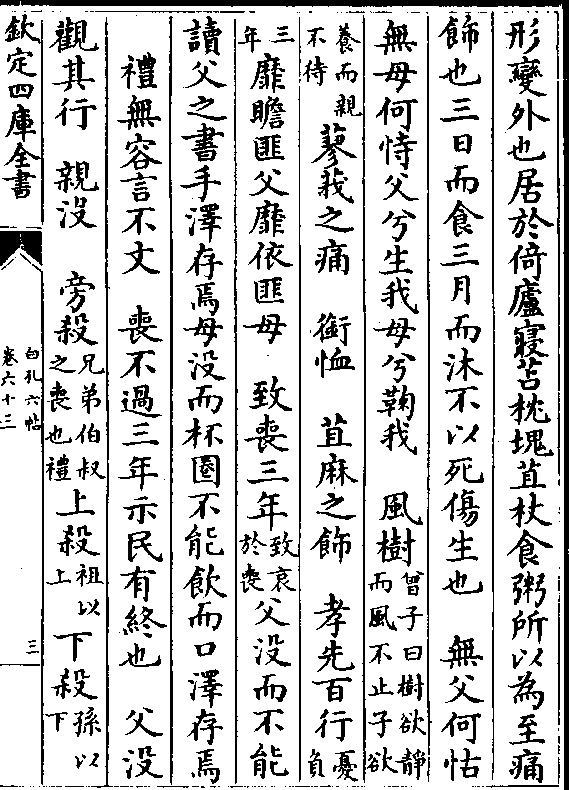 形變外也居於倚廬寢苫枕塊苴杖食粥所以為至痛
飾也三日而食三月而沐不以死傷生也　無父何怙
無母何恃父兮生我母兮鞠我　風樹曾子曰樹欲靜而風不止子欲
養而親不待　蓼莪之痛　銜恤　苴麻之飾　孝先百行憂負
三年靡瞻匪父靡依匪母　致喪三年致哀於喪父没而不能
讀父之書手澤存焉母没而杯圈不能飲而口澤存焉
禮無容言不文　喪不過三年示民有終也　父没
觀其行　親沒　旁殺兄弟伯叔之喪也禮上殺祖以上下殺孫以下
欽定四庫全書
白孔六帖
卷六十三
三